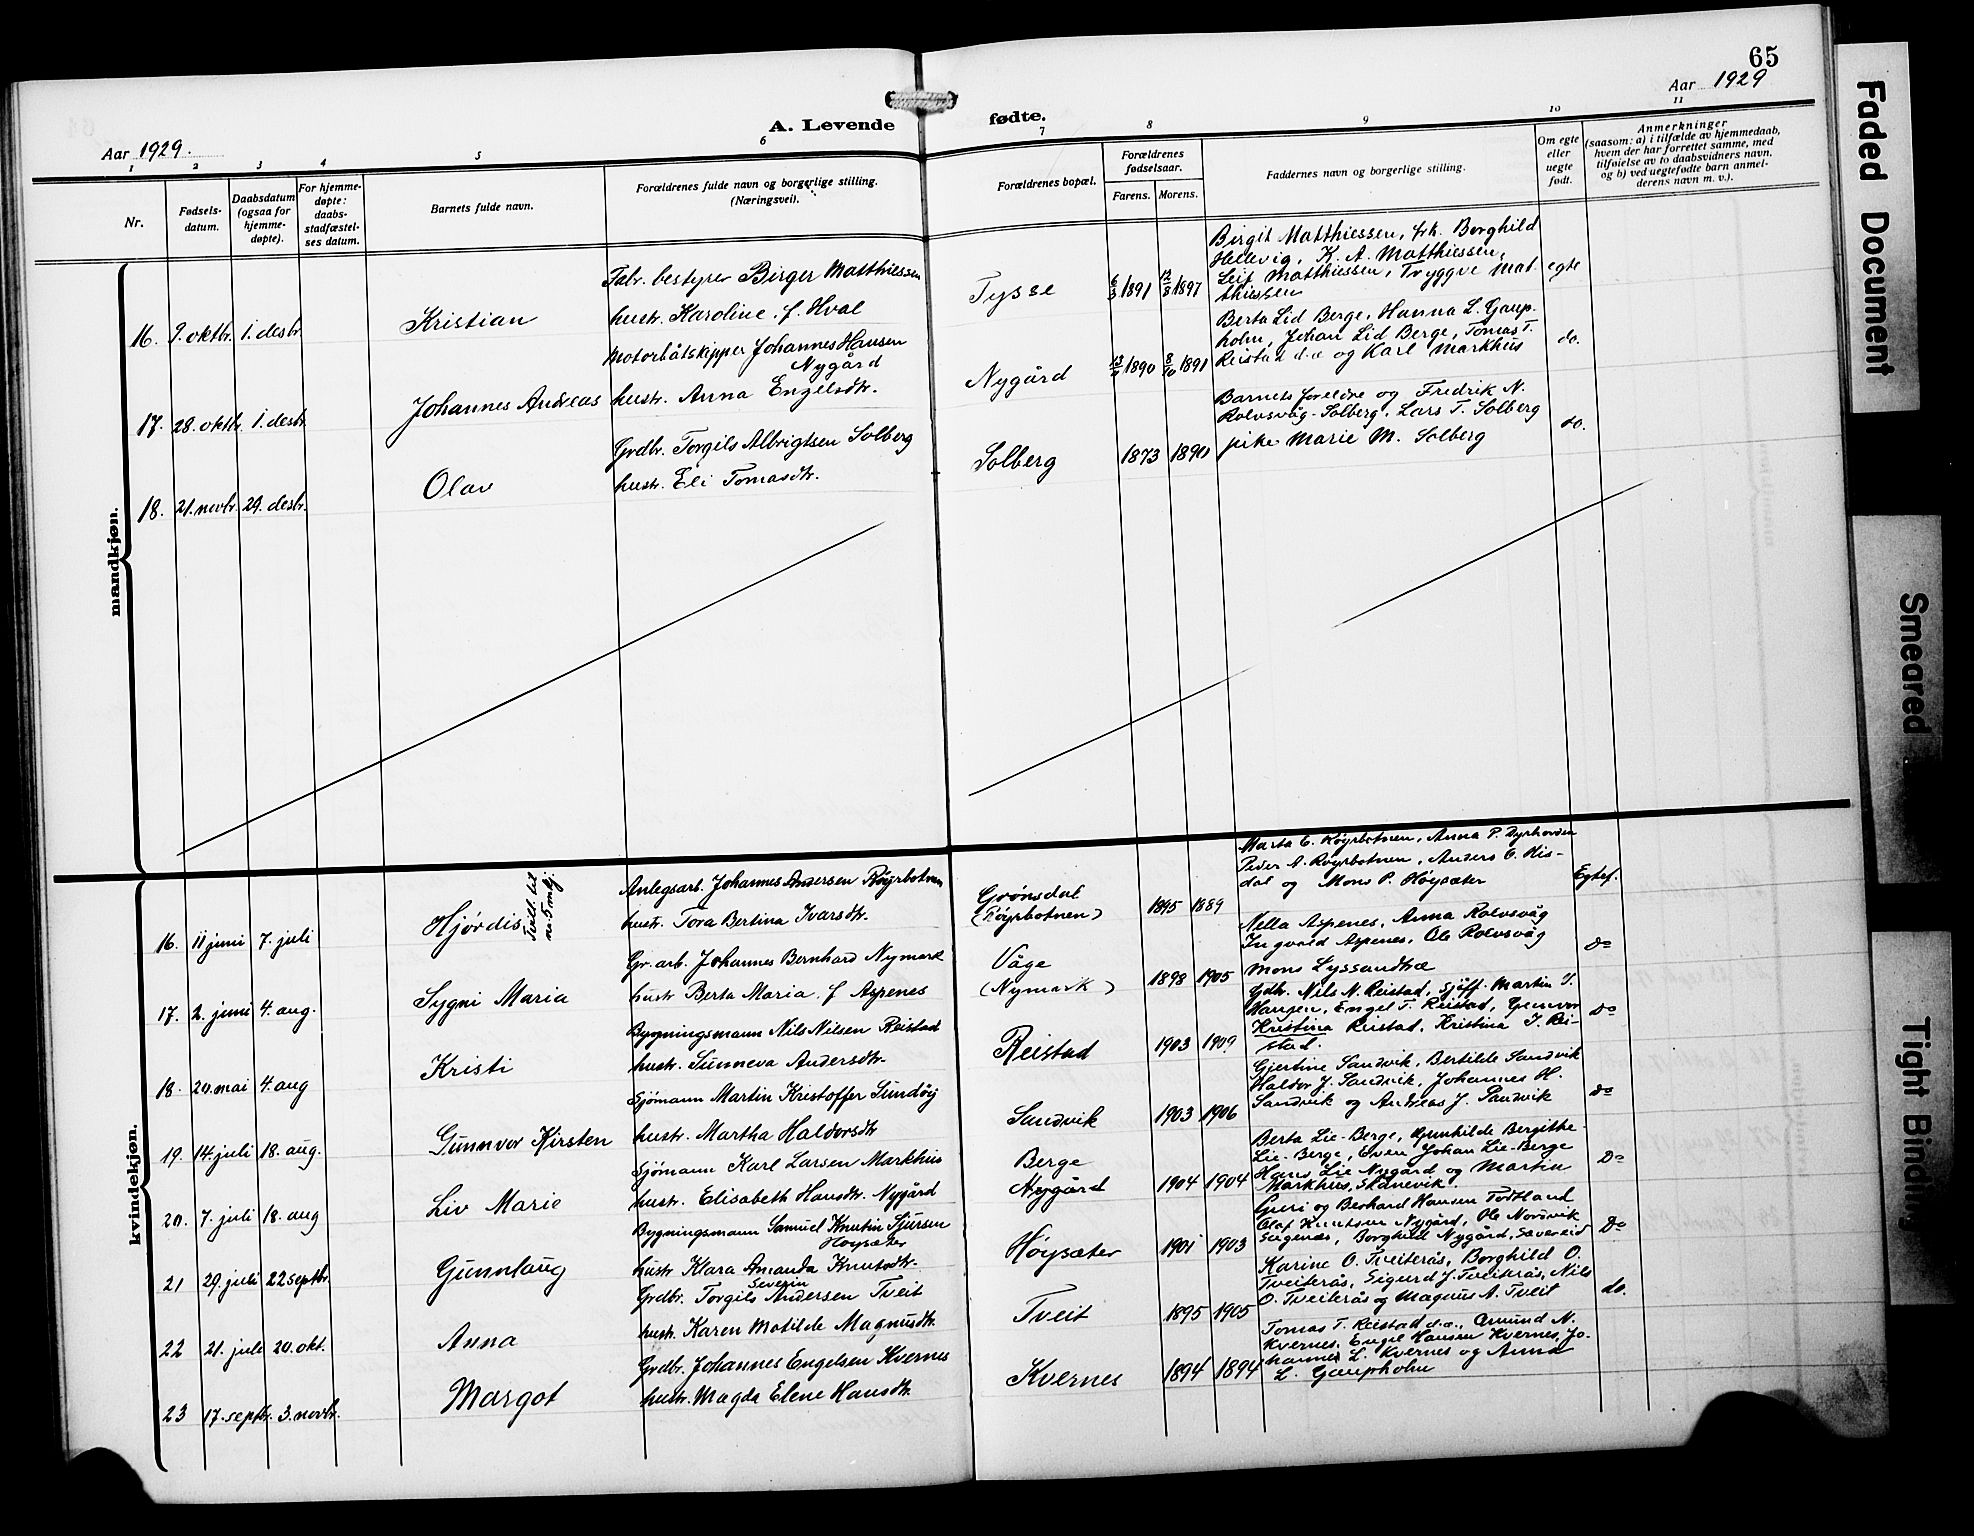 65
Aar 1929.
Aar 1929
A. Levende fødte.
1 2 3 4 5 6 7 8 9 10 11
Nr.
Fødsels-
datum.
Daabsdatum
(ogsaa for
hjemme-
døpte).
For hjemme-
døpte:
daabs-
stadfæstel-
ses datum.
Barnets fulde navn.
Forældrenes fulde navn og borgerlige stilling.
(Næringsvei).
Forældrenes bopæl.
Forældrenes
fødselsaar.
Farens. Morens.
Faddernes navn og borgerlige stilling.
Om egte
eller
uegte
født.
Anmerkninger
(saasom: a) i tilfælde av hjemmedaab,
hvem der har forrettet samme, med
tilføielse av to daabsvidners navn,
og b) ved uegtefødte barn anmel-
derens navn m. v.).
mandkjøn.
16. 9. oktbr. 1. desbr.
Kristian
Fabr. bestyrer Birger Matthiessen
hustr. Karoline f. Hval
Tysse
6/3 1891 12/8 1897
Birgit Matthiessen, frk. Borghild
Hellevig, K. A. Matthiessen,
Leif Matthiessen, Tryggve Mat-
thiessen
egte
17. 28. oktbr. 1. desbr.
Johannes Andreas
Motorbåtskipper Johannes Hansen
Nygård
hustr. Anna Engelsdtr.
Nygård
1890 8/10 1891
Berta Lid Berge, Hanna L. Gaup-
holm, Johan Lid Berge, Tomas T.
Reistad d.æ og Karl Markhus
do.
18. 21. novbr. 29. desbr.
Olav
Grdbr. Torgils Albrigtsen Solberg
hustr. Eli Tomasdtr.
Solberg
1873 1890
Barnets foreldre og Fredrik N.
Rolvsvåg-Solberg, Lars T. Solberg
pike Marie M. Solberg
do.
kvindekjøn.
16. 11 juni 7. juli
Hjørdis
Tvill. til
nr. 5 mkj.
Anlegsarb. Johannes Andersen Røyrbotnen
hustr. Tora Bertina Ivarsdtr.
Grønsdal
(Røyrbotnen)
1895 1889
Marta C. Røyrbotnen, Anna P. Dyrhovden
Peder A. Røyrbotnen, Anders O. His-
dal og Mons P. Høysæter
Egtef.
17. 2. juni 4. aug.
Sygni Maria
Gr. arb. Johannes Bernhard Nymark
hustr Berta Maria f Aspenes
Våge
(Nymark)
1898 1905
Nella Aspenes, Anna Rolvsvåg
Ingvald Aspenes, Ole Rolvsvåg
Mons Lyssandtræ
do
18. 20. mai 4. aug
Kristi
Bygningsmann Nils Nilsen Reistad
hustr. Sunneva Andersdtr.
Reistad
1903 1909
Gdbr. Nils N. Reistad, Sjöff. Martin I.
Haugen, Engel T. Reistad, Gunnvor
Kristina Reistad, Kristina J. Rei-
stad.
do
19. 14. juli 18. aug.
Gunnvor Kirsten
Sjømann Martin Kristoffer Sundøy
hustr. Martha Haldorsdtr
Sandvik
1903 1906
Gjertine Sandvik, Bertilde Sandvik
Haldor J. Sandvik, Johannes H.
Sandvik og Andreas J. Sandvik
do
20. 7. juli 18. aug
Liv Marie
Sjømann Karl Larsen Markhus
hustr. Elisabeth Hansdtr. Nygård
Berge
Nygård
1904 1904
Berta Lie-Berge, Gunhilde Bergithe
Lie-Berge, Sven Johan Lie-Berge
Hans Lie Nygård og Martin
Markhus, Skånevik.
Do
21 29. juli 22 septbr.
Gunnlaug
Bygningsmann Samuel Knutin Sjursen
Høysæter
hustr Klara Amanda Knutsdtr.
Høysæter
1901 1903
Guri og Berhard Hansen Todtland
Olaf Knutsen Nygård, Ole Nordvik
Eugenæs, Borghild Nygård, Sævereid
Do
22 21. juli 20. okt.
Anna
Grdbr. Torgils Severin Andersen Tveit
hustr. Karen Matilde Magnusdtr.
Tveit
1895 1905
Karine O. Tveiterås, Borghild O.
Tveiterås, Sigurd J. Tveiterås, Nils
O. Tveiterås og Magnus A. Tveit
do.
23 17. septbr. 3. novbr.
Margot
Grdbr. Johannes Engelsen Kvernes
hustr. Magda Elene Hansdtr.
Kvernes
1894 1894
Tomas T. Reistad d.æ., Amund N.
Kvernes, Engel Hansen Kvernes, Jo-
hannes L. Kvernes og Anna
L. Gaupholm
Faded Document
Smeared
Tight Binding